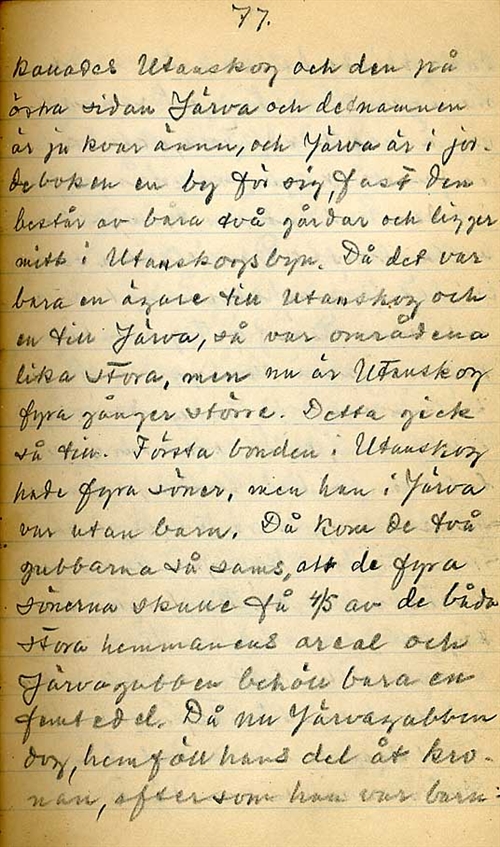 77.
kallades Utanskog och den på
östra sidan Järva och de namnen
är ju kvar ännu, och Järva är i jor-
deboken en by för sig, fast den
består av bara två gårdar och ligger
mitt i Utanskogsbyn. Då det var
bara en ägare till Utanskog och
en till Järva, så var områdena
lika stora, men nu är Utanskog
fyra gånger större. Detta gick
så till. Första bonden i Utanskog
hade fyra söner, men han i Järva
var utan barn. Då kom de två
gubbarna så sams, att de fyra
sönerna skulle få 4/5 av de båda
stora hemmanens areal och
Järvagubben behöll bara en
femtedel. Då nu Järvagubben
dog, hemföll hans del åt kro-
nan, eftersom han var barn-